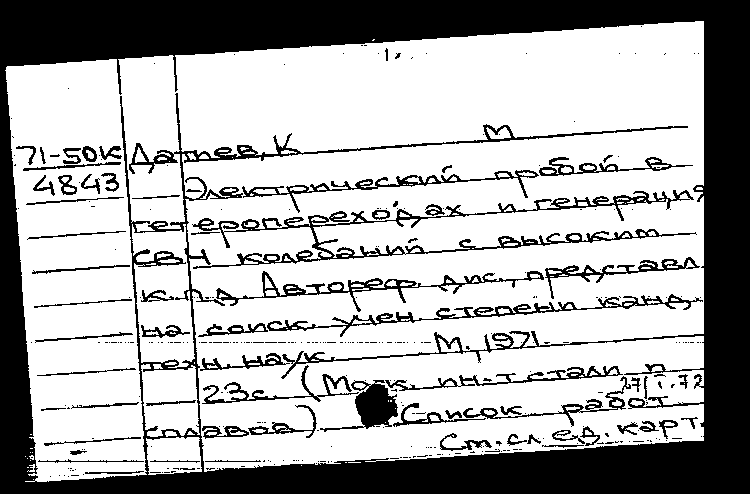 1.
71-50к Датиев, К М
4843 Электрический пробой в
гетеропереходах и генерация
СВЧ колебаний с высоким
к.п.д. Автореф. дис., представл.
на соиск. учен. степени канд.
техн. наук. М., 1971.
23с. (Моск. ин-т стали и
27/I.72
сплавов). Список работ
См. след. карт.